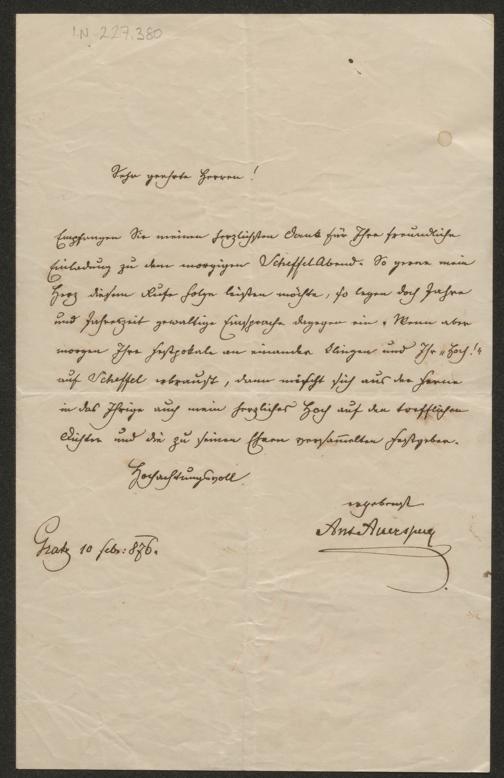 I.N. 227.380
Sehr geehrte Herren!
Empfangen Sie meinen herzlichsten Dank für Ihre freundliche
Einladung zu dem morgigen Scheffel Abend. So gerne mein
Herz diesem Rufe Folge leisten möchte, so legen doch Jahre
und Jahreszeit gewaltige Einsprache dagegen ein. Wenn aber
morgen Ihre Festpokale an einander klingen und Ihr „Hoch!"
auf Scheffel erbraust, dann mischt sich aus der Ferne
in das Ihrige auch mein herzliches Hoch auf den trefflichen
Dichter und die zu seinen Ehren versammelten Festgeber.
Hochachtungsvoll
ergebenst
Ant Auersperg
Gratz 10 Feb: 876.